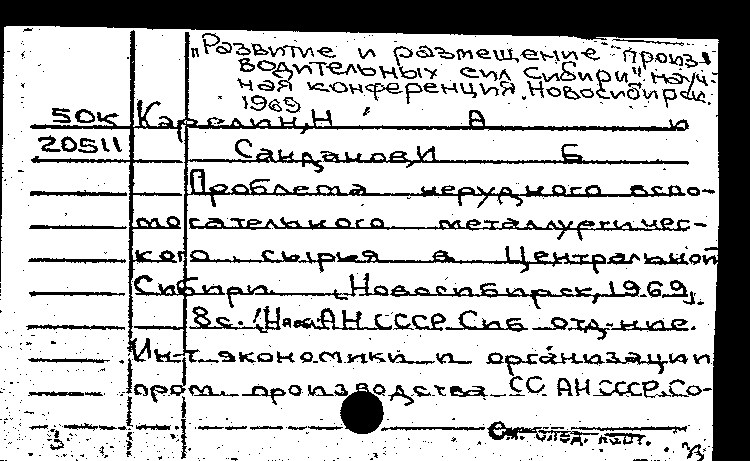 „Развитие и размещение произ-
водительных сил Сибири", науч-
ная конференция. Новосибирск.
1969
50к Карелин, Н А и
20511 Санданов, И Б
Проблема нерудного вспо-
могательного металлургичес-
кого сырья в Центральной
Сибири. Новосибирск, 1969.
8с. (Нов. АН СССР Сиб отд-ние.
Ин-т экономики и организации
пром. производства СО АН СССР. Со-
См. след. карт.